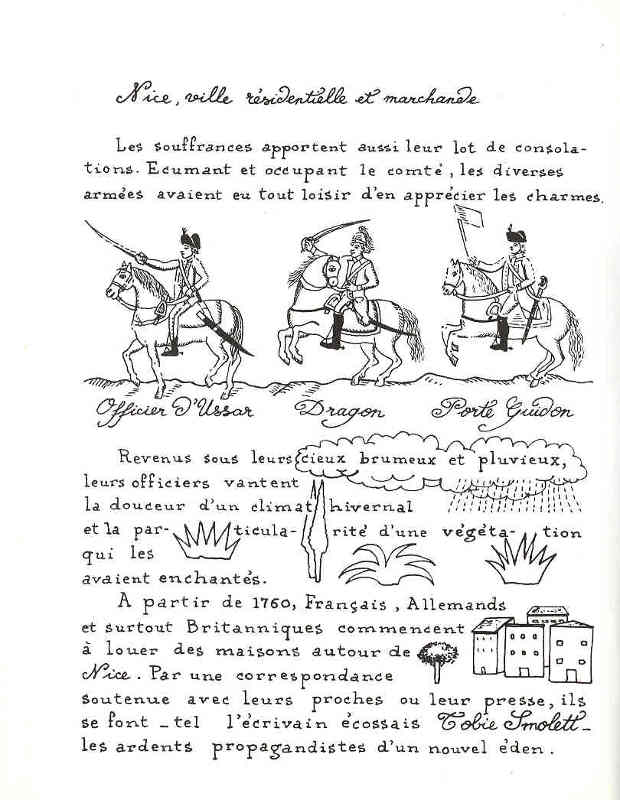 Nice, ville résidentielle et marchande
Les souffrances apportent aussi leur lot de consola-
tions. Ecumant et occupant le comté, les diverses
armées avaient eu tout loisir d'en apprécier les charmes.
Officier D'Ussar
Dragon
Porte Guidon
Revenus sous leurs cieux brumeux et pluvieux,
leurs officiers vantent
la douceur d'un climat hivernal
et la par- ticula- rité d'une végéta- tion
qui les
avaient enchantés.
A partir de 1760, Français, Allemands
et surtout Britanniques commencent
à louer des maisons autour de
Nice. Par une correspondance
soutenue avec leurs proches ou leur presse, ils
se font _ tel l'écrivain écossais Tobie Smolett _
les ardents propagandistes d'un nouvel éden.